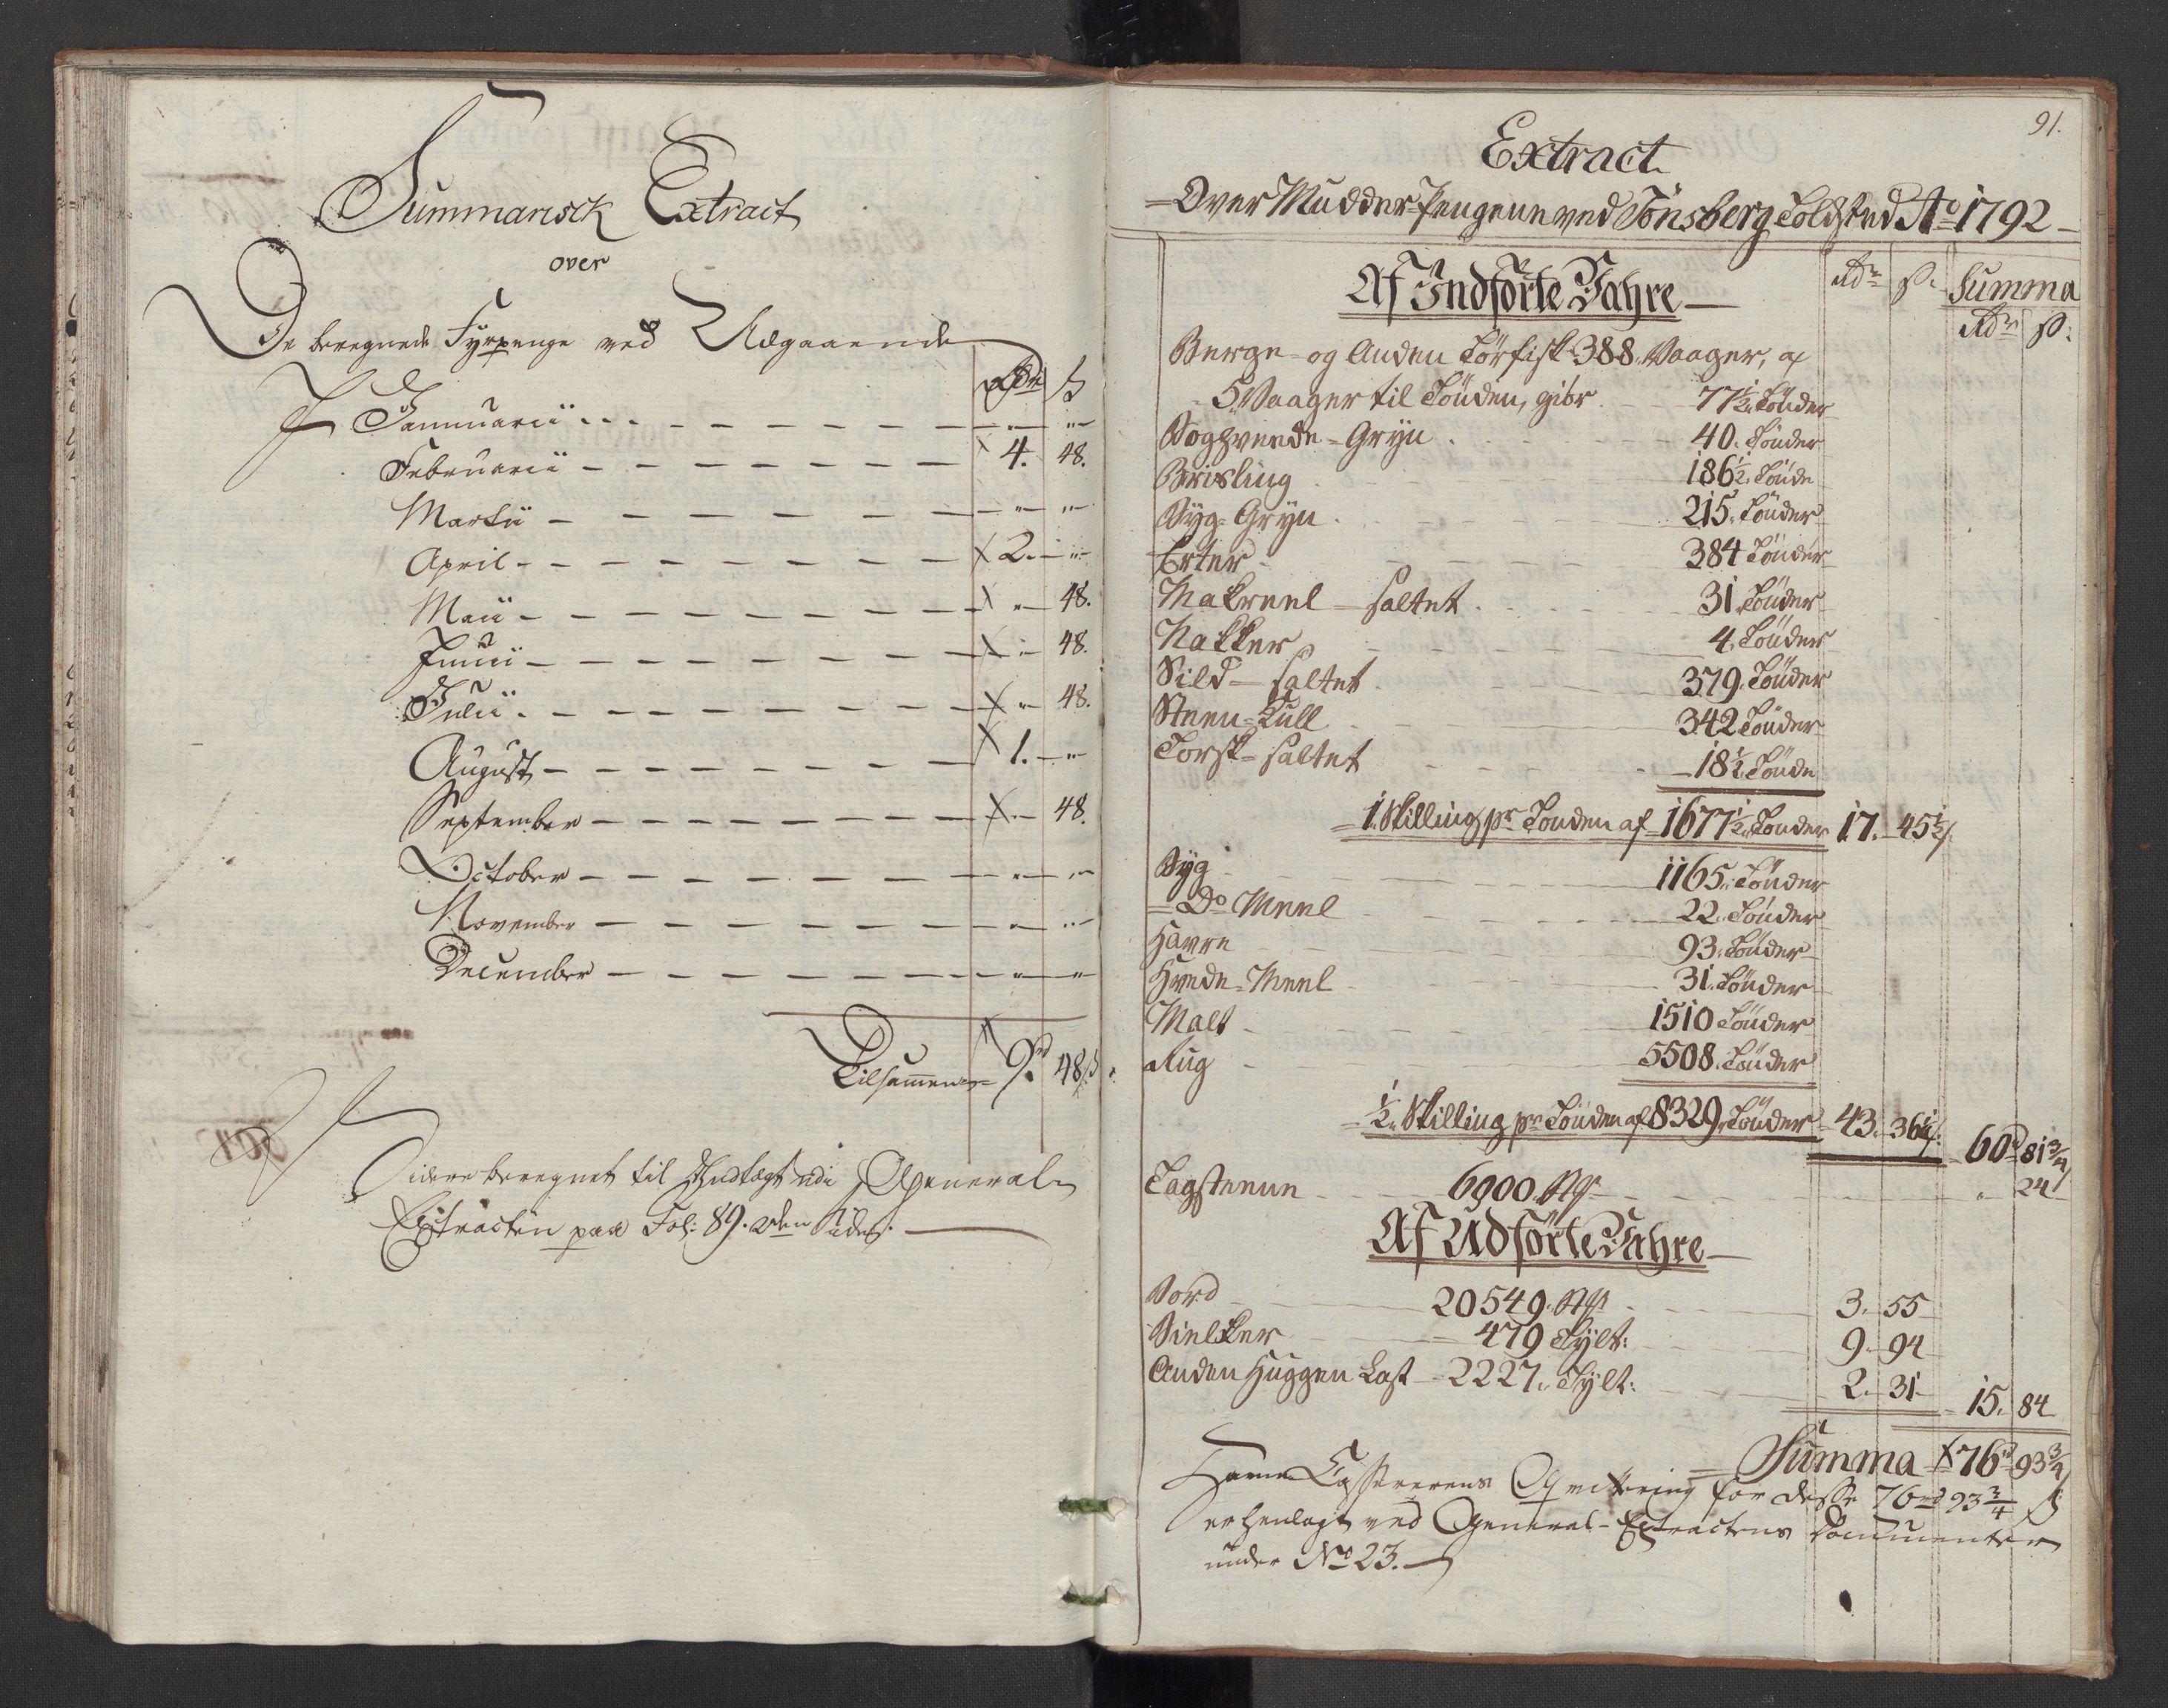 Summarisk Extract
over
De beregnede Fyrpenge ved Udgaaende
Rdr ß
I Januarii - " "
Februarii - 4. 48.
Martii - " "
April - 2. "
Maii - " 48.
Junii - " 48.
Julii - " 48.
August - 1. "
September - " 48.
October - " "
November - " "
December - " "
Tilsammen 9rd 48ß
Videre beregnet til Indtægt udi General
Extracten paa Fol: 89. 2den Side.
91.
Extract
Over Mudder-Pengene ved Tönsberg Toldsted Ao 1792
Af Indförte Vahre
Rdr ß. Summa
Rdr ß:
Berge- og Anden Törfisk 388. Vaager, a
5 Vaager til Tönden, giör 77½ Tönder
Boghvede-Gryn 40. Tönder
Brisling 186½ Tönde
Byg-Gryn 215. Tönder
Erter 384 Tönder
Makreel saltet 31. Tönder
Nakker 4. Tönder
Sild saltet 379. Tönder
Steen-Kull 342 Tönder
Torsk-saltet 18½ Tönde
1. Skilling pr Tönden af 1677½ Tönder 17. 45½
Byg 1165. Tönder
Do Meel 22. Tönder
Havre 93. Tönder
Hvede-Meel 31. Tönder
Malt 1510 Tönder
Rug 5508. Tönder
½ Skilling pr Tönden af 8329 Tönder 43. 36¼ 60rd 81¾
Tagsteene 6900. Stk " 24
Af Udförte Vahre
Bord 20549. Stk 3. 55
Bielker 479 Tylt: 9. 94
Anden Huggen Last 2227. Tylt: 2. 31 15. 84
Summa 76rd 93¾
Havne Cassererens Qvittering for disse 76rd 93¾ ß
er henlagt ved General-Extractens Documenter
under No 23.